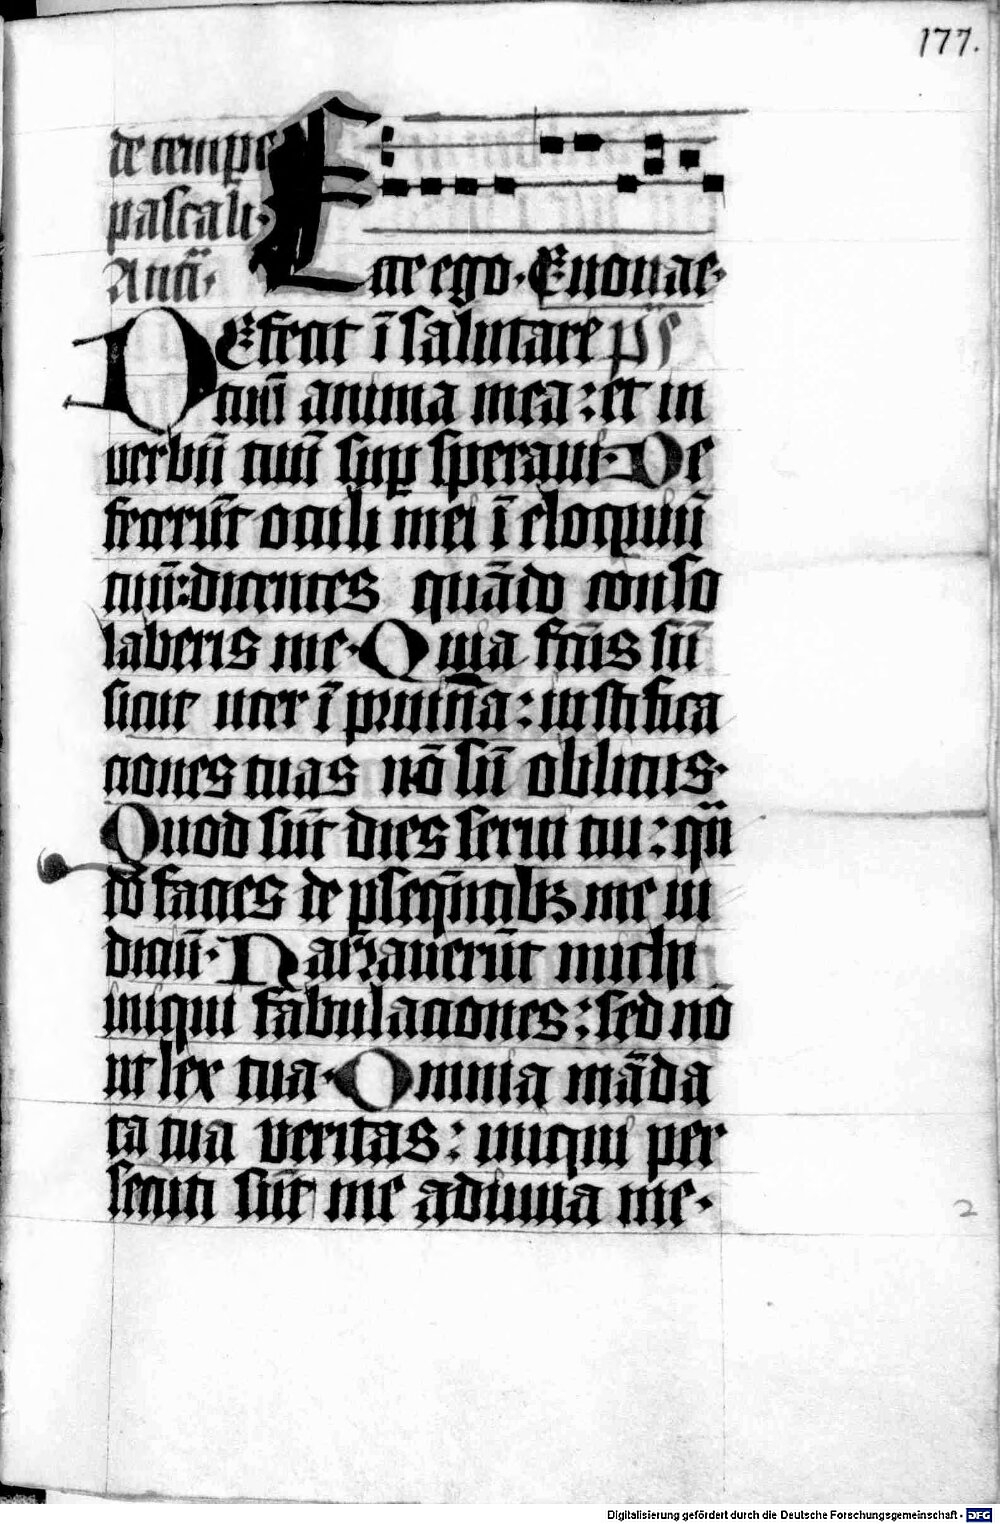 177.
de temp̄e
pascali·
Anā· Ecce ego· Euouae·
DEfecit ī salutare ps̄
tuū anima mea: et in
verbū tuū suꝑ speraui· De
fecerūt oculi mei ī eloquiū
tuū: dicentes quādo conso
laberis me· Quia fc̄us sū
sicut uter ī pruina: iustifica
ciones tuas nō sū oblitus·
Quod sūt dies serui tui: qn̄
do facies de ꝑseqūtibꝫ me iu
diciū· Narrauerūt michi
iniqui fabulaciones: sed nō
ut lex tua· Omnia māda
ta tua veritas: iniqui per
secuti sūt me adiuua me·
2
Digitalisierung gefördert durch die Deutsche Forschungsgemeinschaft - DFG